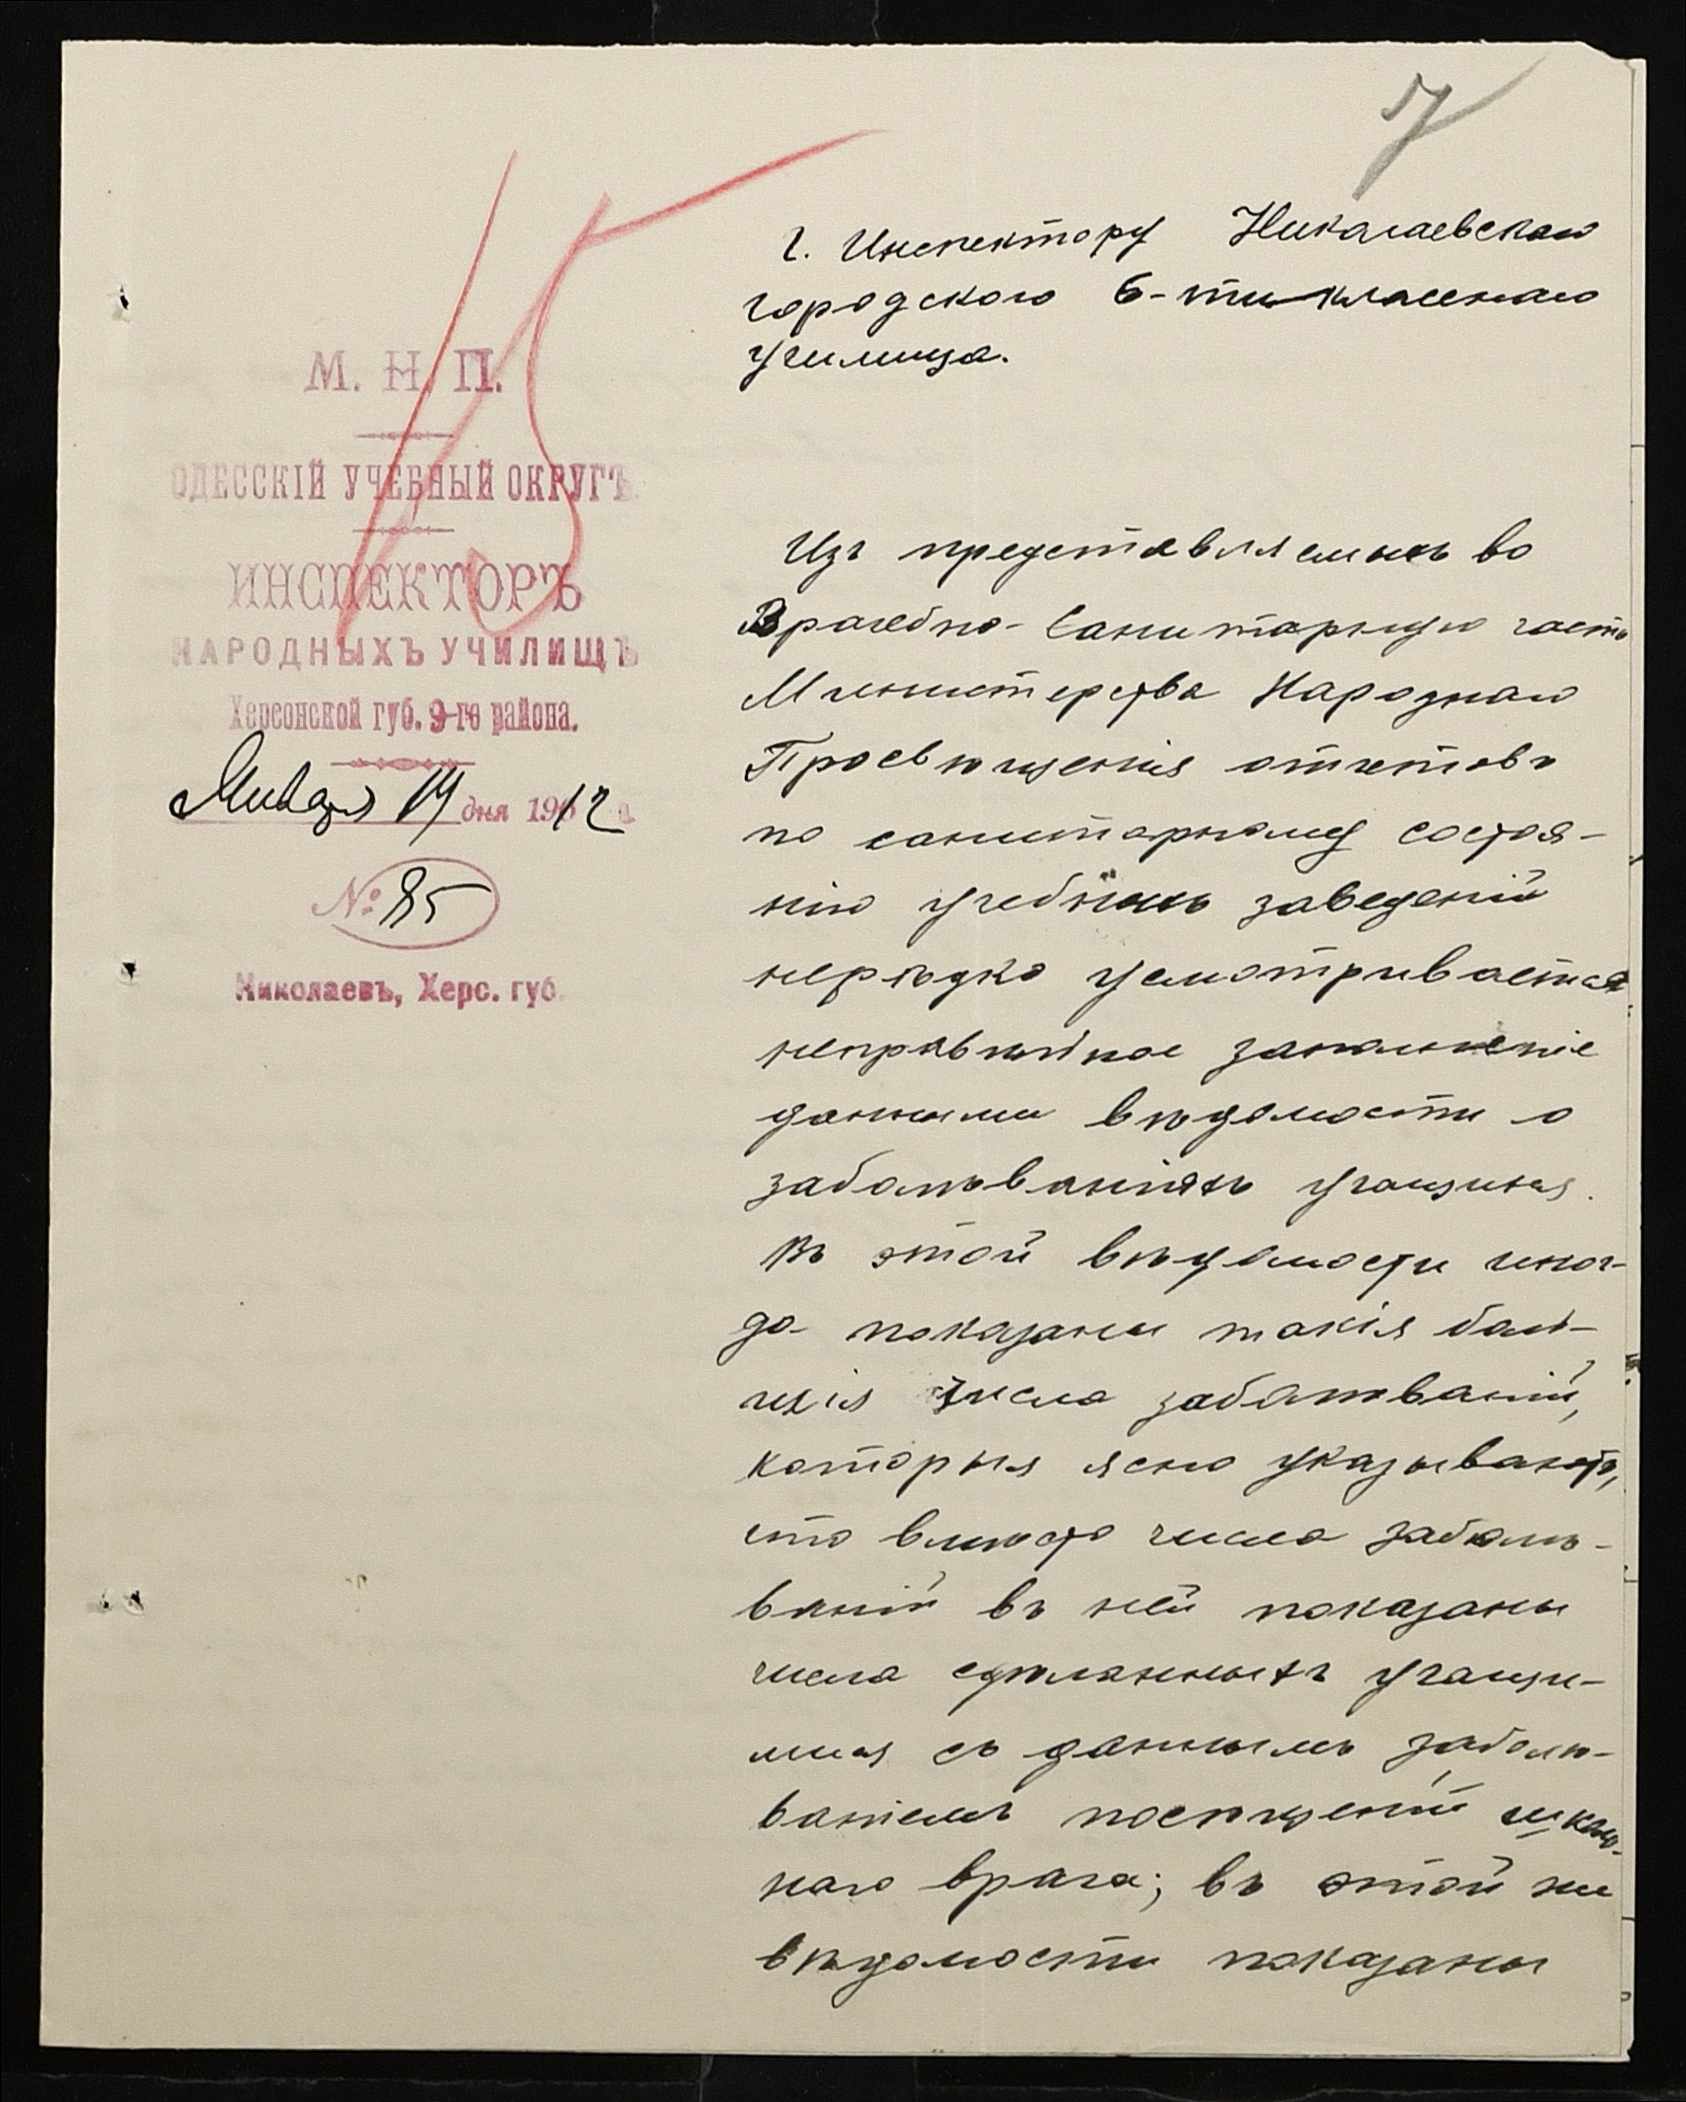 7
15
М. Н. П.
ОДЕССКІЙ УЧЕБНЫЙ ОКРУГЪ.
ИНСПЕКТОРЪ
НАРОДНЫХЪ УЧИЛИЩЪ
Херсонской губ. 9-го района.
Января 14 дня 1912
№ 85
Николаевъ, Херс. губ.
Г. Инспектору Николаевскаго
городского 6-ти класснаго
училища.
Изъ представляемыхъ во
Врачебно-Санитарную часть
Министерства Народнаго
Просвѣщенія отчетовъ
по санитарному состоя-
нію учебныхъ заведеній
нерѣдко усматривается
неправильное заполненіе
данными вѣдомости о
заболѣваніяхъ учащихся.
Въ этой вѣдомости иног-
да показаны такія боль-
шія числа заболѣваній,
которыя ясно указываютъ,
что вмѣсто числа заболѣ-
ваній въ ней показаны
числа сдѣланныхъ учащи-
мися съ даннымъ заболѣ-
ваніемъ посѣщеній школь-
наго врача; въ этой же
вѣдомости показаны